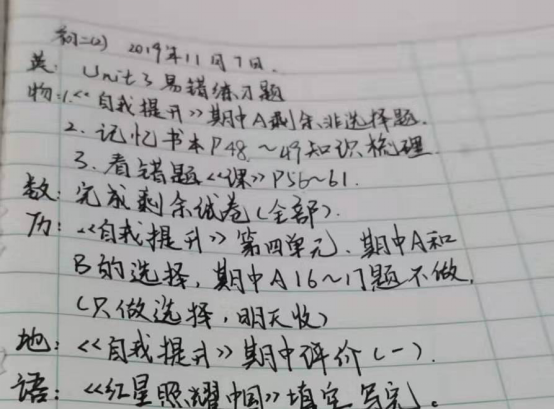 初二(2) 2019年11月7日.
英: Unit 3 易错练习题
物:1.<<自我提升>>期中A剩余非选择题.
2.记忆书本P48~49知识梳理
3.看错题<<课>>P56~61.
数:完成剩余试卷(全部).
历:<<自我提升>>第四单元、期中A和
B的选择,期中A16~17题不做.
(只做选择,明天收)
地:<<自我提升>>期中评价(一).
语:<<红星照耀中国>>填空写完。